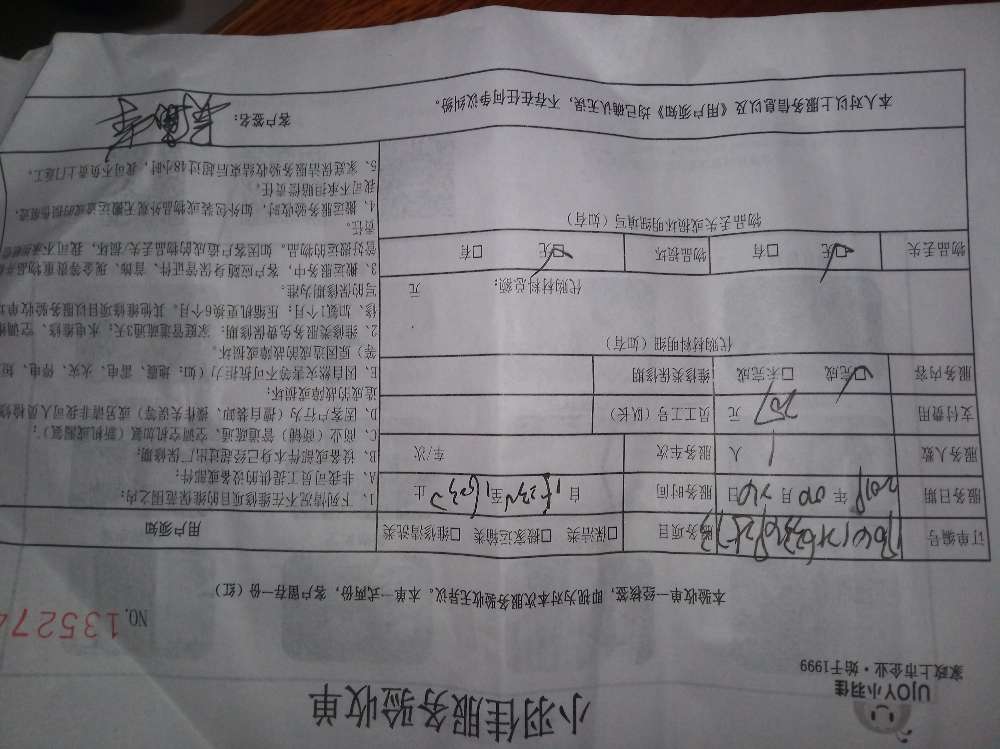 UJOY小羽佳
家政上市企业·始于1999
小羽佳服务验收单
NO. 135274
本验收单一经核签，即视为对本次服务验收无异议。本单一式两份，客户留存一份（红）
订单编号
服务项目 □保洁类 □搬家运输类 □维修清洗类
服务日期 年 月 日 服务时间 自 至 止
服务人数 1 人 服务车次 车/次
支付费用 元 员工工号（队长）
服务内容 □完成 □未完成 维修类保修期
代购材料明细（如有）
代购材料总额： 元
物品丢失 □无 □有 物品损坏 □无 □有
物品丢失或损坏明细填写（如有）
用户须知
1、下列情况不在维修项目的维保范围之内：
A、非我司员工提供的设备或部件；
B、设备或部件本身已经超过出厂保修期；
C、商业（商铺）管道疏通、空调空机加氟（新机或漏氟）；
D、因客户行为（擅自装卸、操作失误等）或另请非我司人员检修
造成的故障或损坏；
E、因自然灾害等不可抗拒力（如：地震、雷电、火灾、停电、短
等）原因造成的故障或损坏。
2、维修类服务免费保修期：家庭管道疏通3天；水电维修、空调维
修、加氟1个月；压缩机更换6个月。其他维修项目以服务验收单填
写的保修期为准。
3、搬运服务中，客户应随身保管证件、首饰、现金等贵重物品
管好搬运的物品。如因客户造成的物品丢失、损坏，我司不承担
责任。
4、搬运服务验收时，如外包装或物品外观无搬运造成的损伤痕迹，
我司不承担赔偿责任。
5、家庭保洁服务验收结束后超过48小时，我司不负责上门返工。
本人对以上服务信息以及《用户须知》均已确认无误，不存在任何争议纠纷。
客户签名：